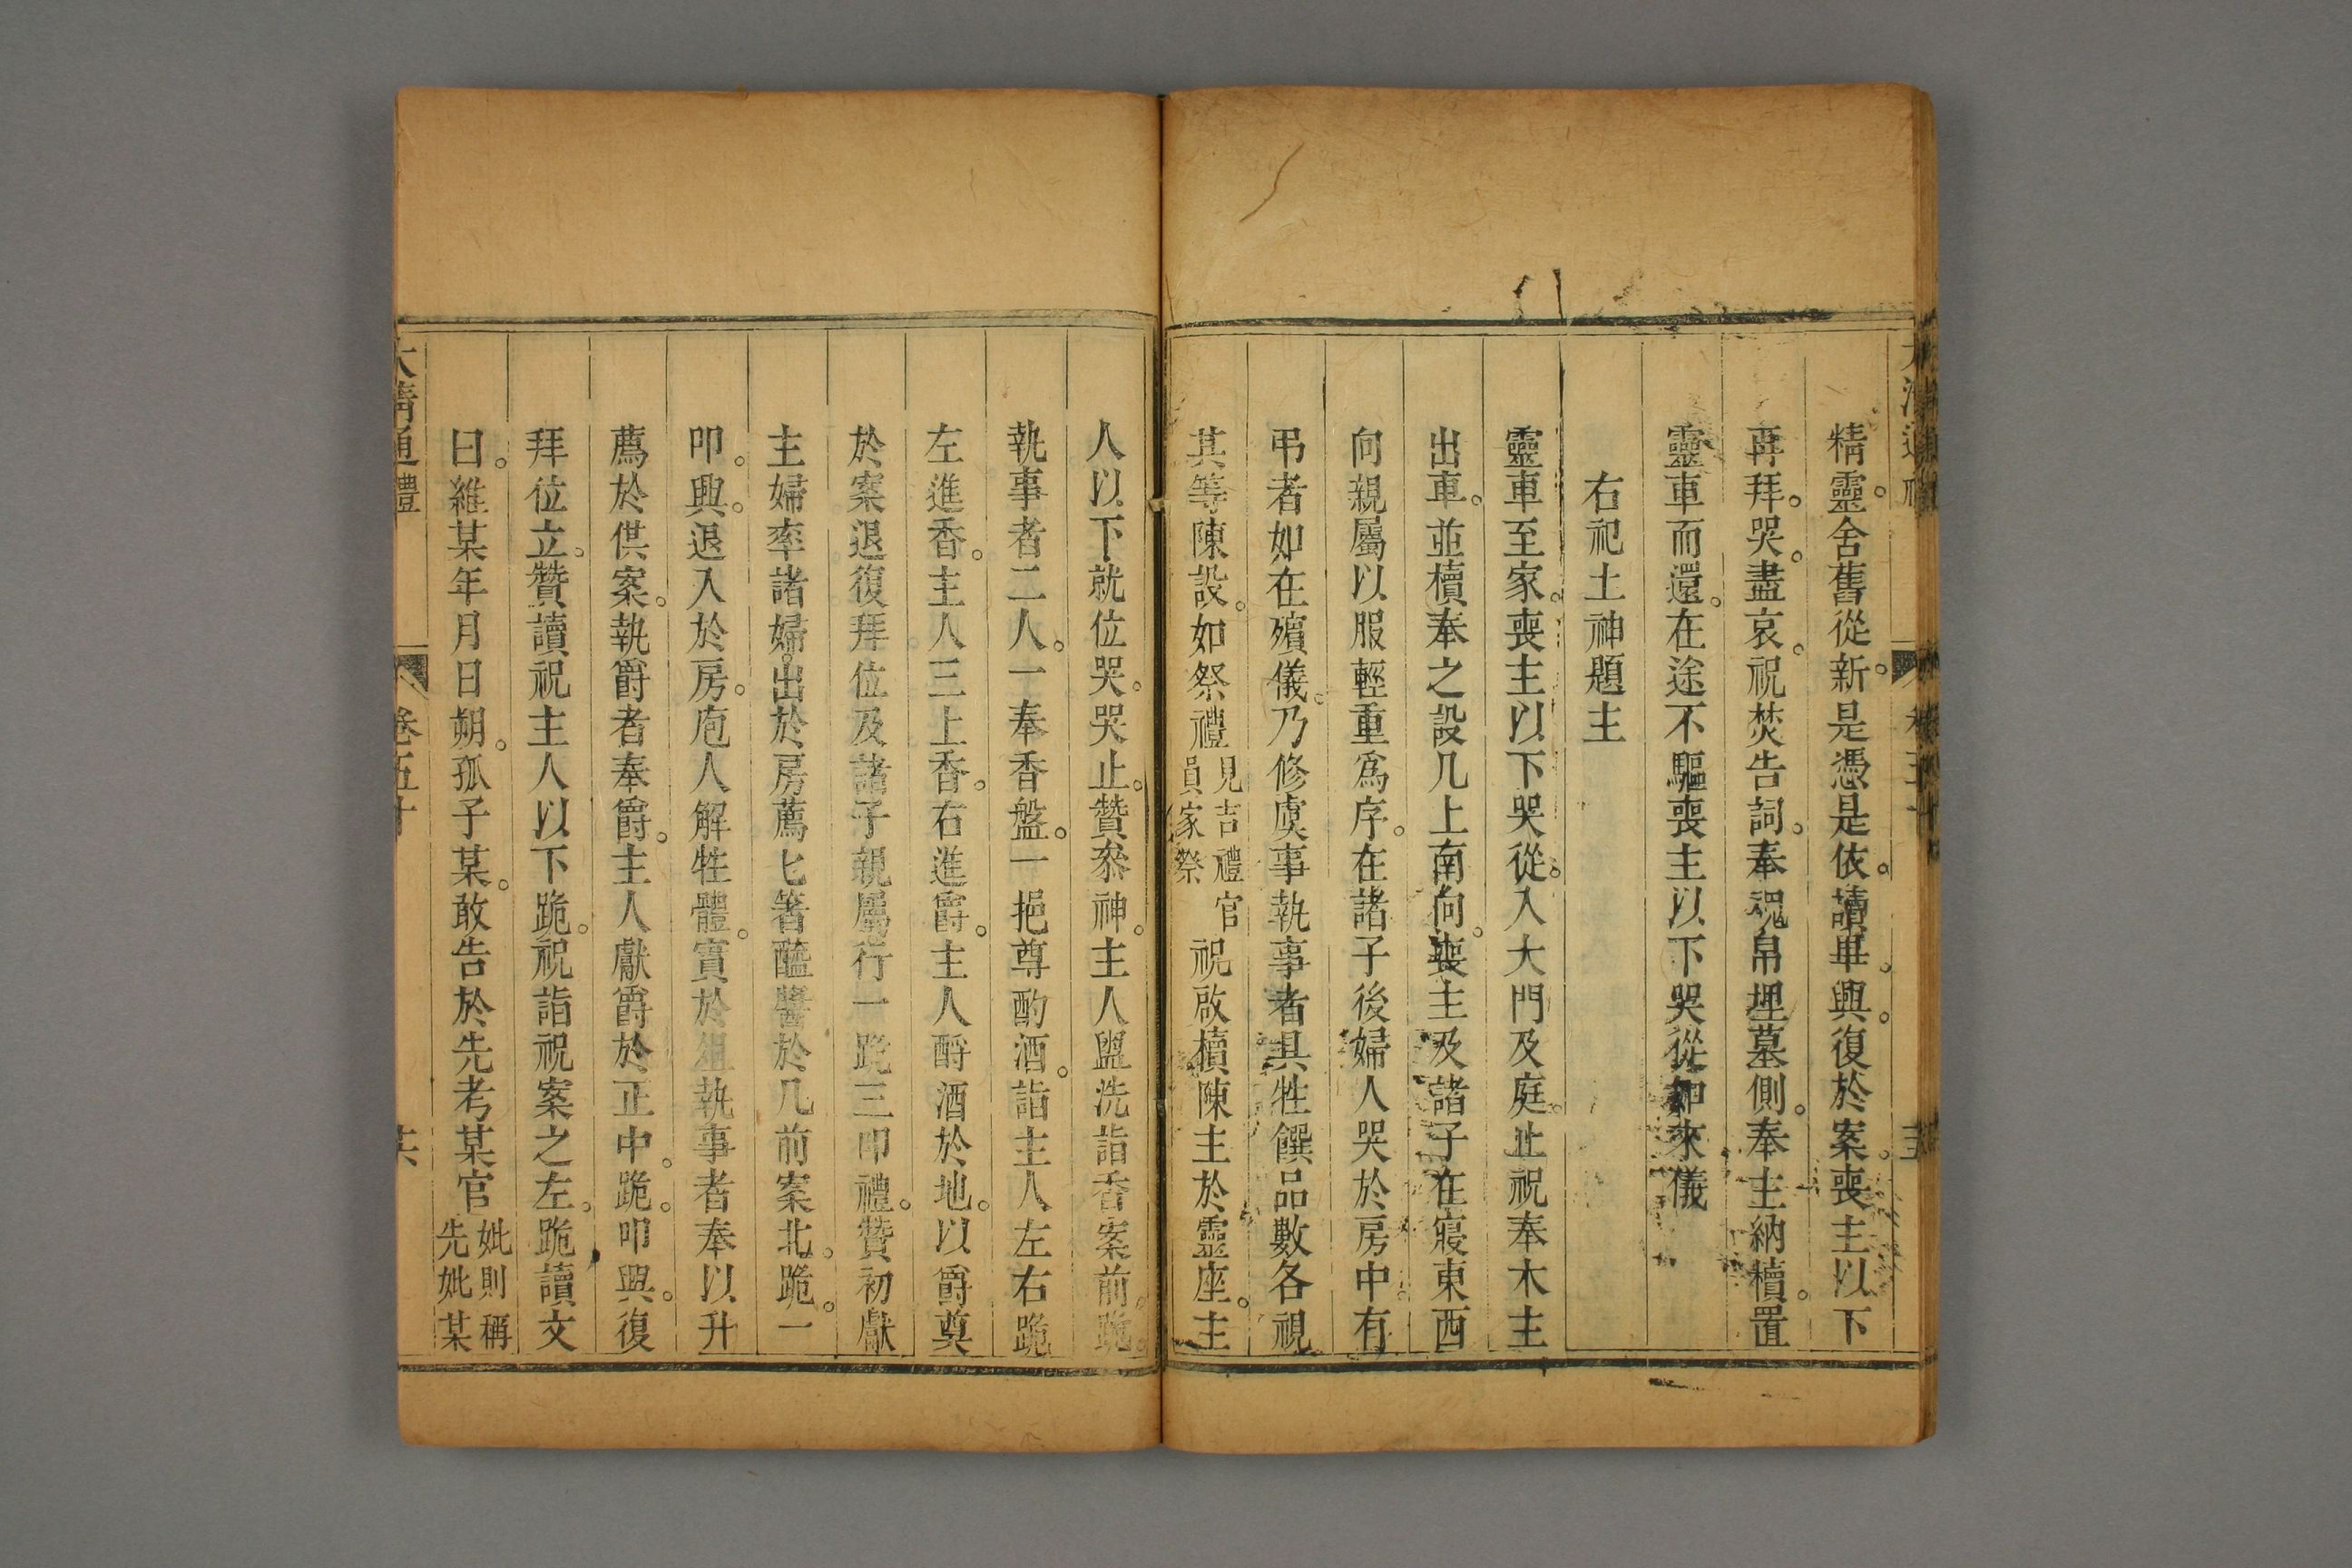 精靈。舍舊從新。是憑是依。讀畢。興。復於案。喪主以下
再拜。哭。盡哀。祝焚告詞。奉魂帛埋墓側。奉主納櫝。置
靈車而還。在途不驅喪主以下哭從如來儀
右祀土神題主
靈車至家。喪主以下哭從。入大門及庭。止祝奉木主
出車。並櫝奉之設几上南向。喪主及諸子在寢東西
向親屬以服輕重爲序。在諸子後婦人哭於房中。有
弔者如在殯儀。乃修虞事執事者具牲饌品數各視
其等陳設。如祭禮見吉禮官員家祭祝啟櫝陳主於靈座。主
人以下就位哭。哭止。贊叅神。主人盥洗詣香案前。跪。
執事者二人。一奉香盤。一挹尊酌酒。詣主人左右跪
左進香。主人三上香。右進爵。主人酹酒於地。以爵奠
於案退復拜位及諸子親屬行一跪三叩禮。贊初獻
主婦率諸婦。出於房薦匕箸醯醬於几前案北。跪。一
叩。興。退入於房。庖人解牲體。實於俎執事者奉以升
薦於供案。執爵者奉爵。主人獻爵於正中。跪。叩興。復
拜位立。贊讀祝主人以下跪。祝詣祝案之左。跪讀文
曰。維某年月日朔。孤子某。敢告於先考某官妣則稱先妣某
大清通禮 卷五十